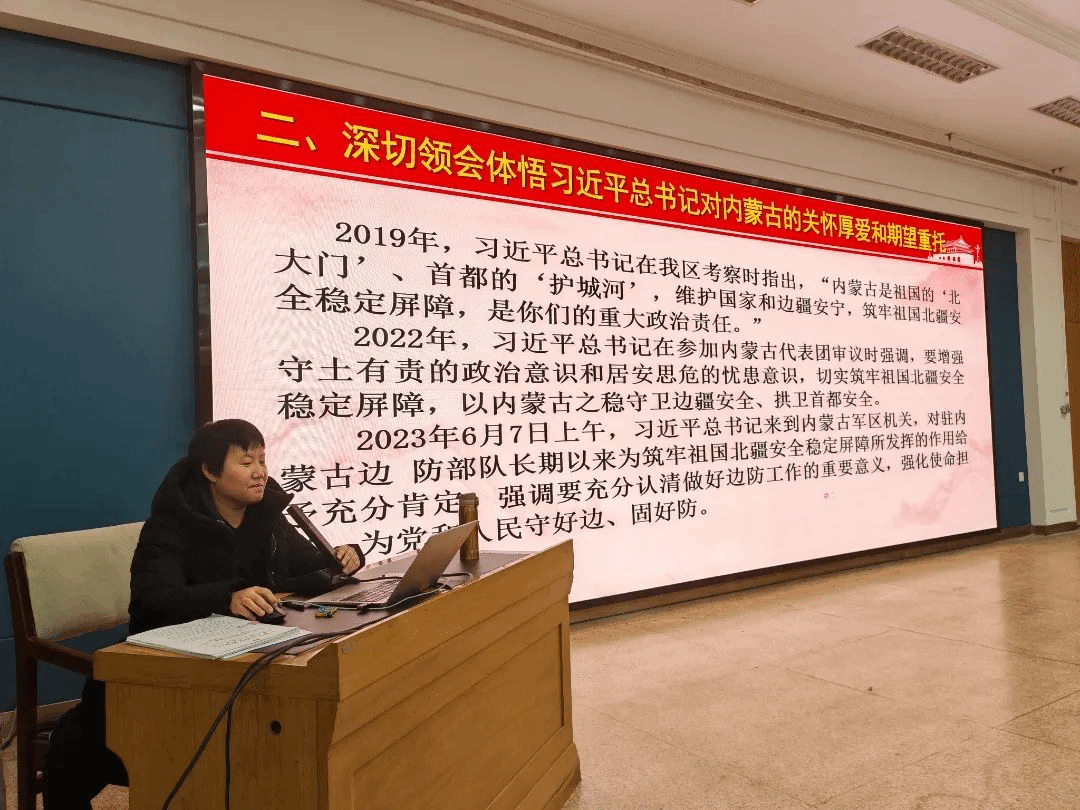 二、深切领会体悟习近平总书记对内蒙古的关怀厚爱和期望重托
2019年，习近平总书记在我区考察时指出，“内蒙古是祖国的‘北
大门’、首都的‘护城河’，维护国家和边疆安宁，筑牢祖国北疆安
全稳定屏障，是你们的重大政治责任。”
2022年，习近平总书记在参加内蒙古代表团审议时强调，要增强
守土有责的政治意识和居安思危的忧患意识，切实筑牢祖国北疆安全
稳定屏障，以内蒙古之稳守卫边疆安全、拱卫首都安全。
2023年6月7日上午，习近平总书记来到内蒙古军区机关，对驻内
蒙古边 防部队长期以来为筑牢祖国北疆安全稳定屏障所发挥的作用给
予充分肯定，强调要充分认清做好边防工作的重要意义，强化使命担
为党和人民守好边、固好防。